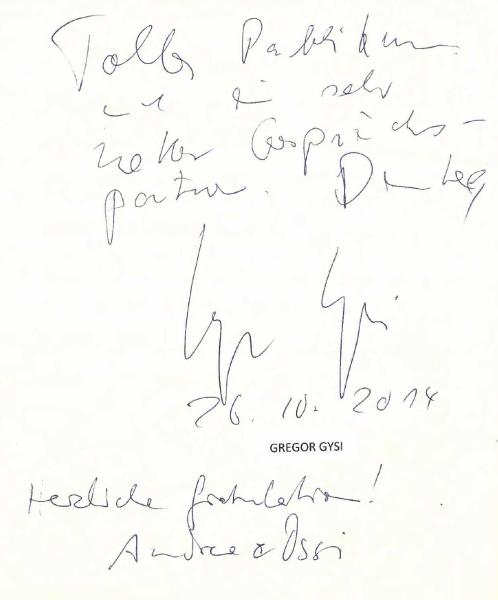 Tolles Publikum
und ein sehr
netter Gesprächs-
partner. Danke
Gregor Gysi
26. 10. 2014
GREGOR GYSI
Herzliche Gratulation!
Andrea & Ossi